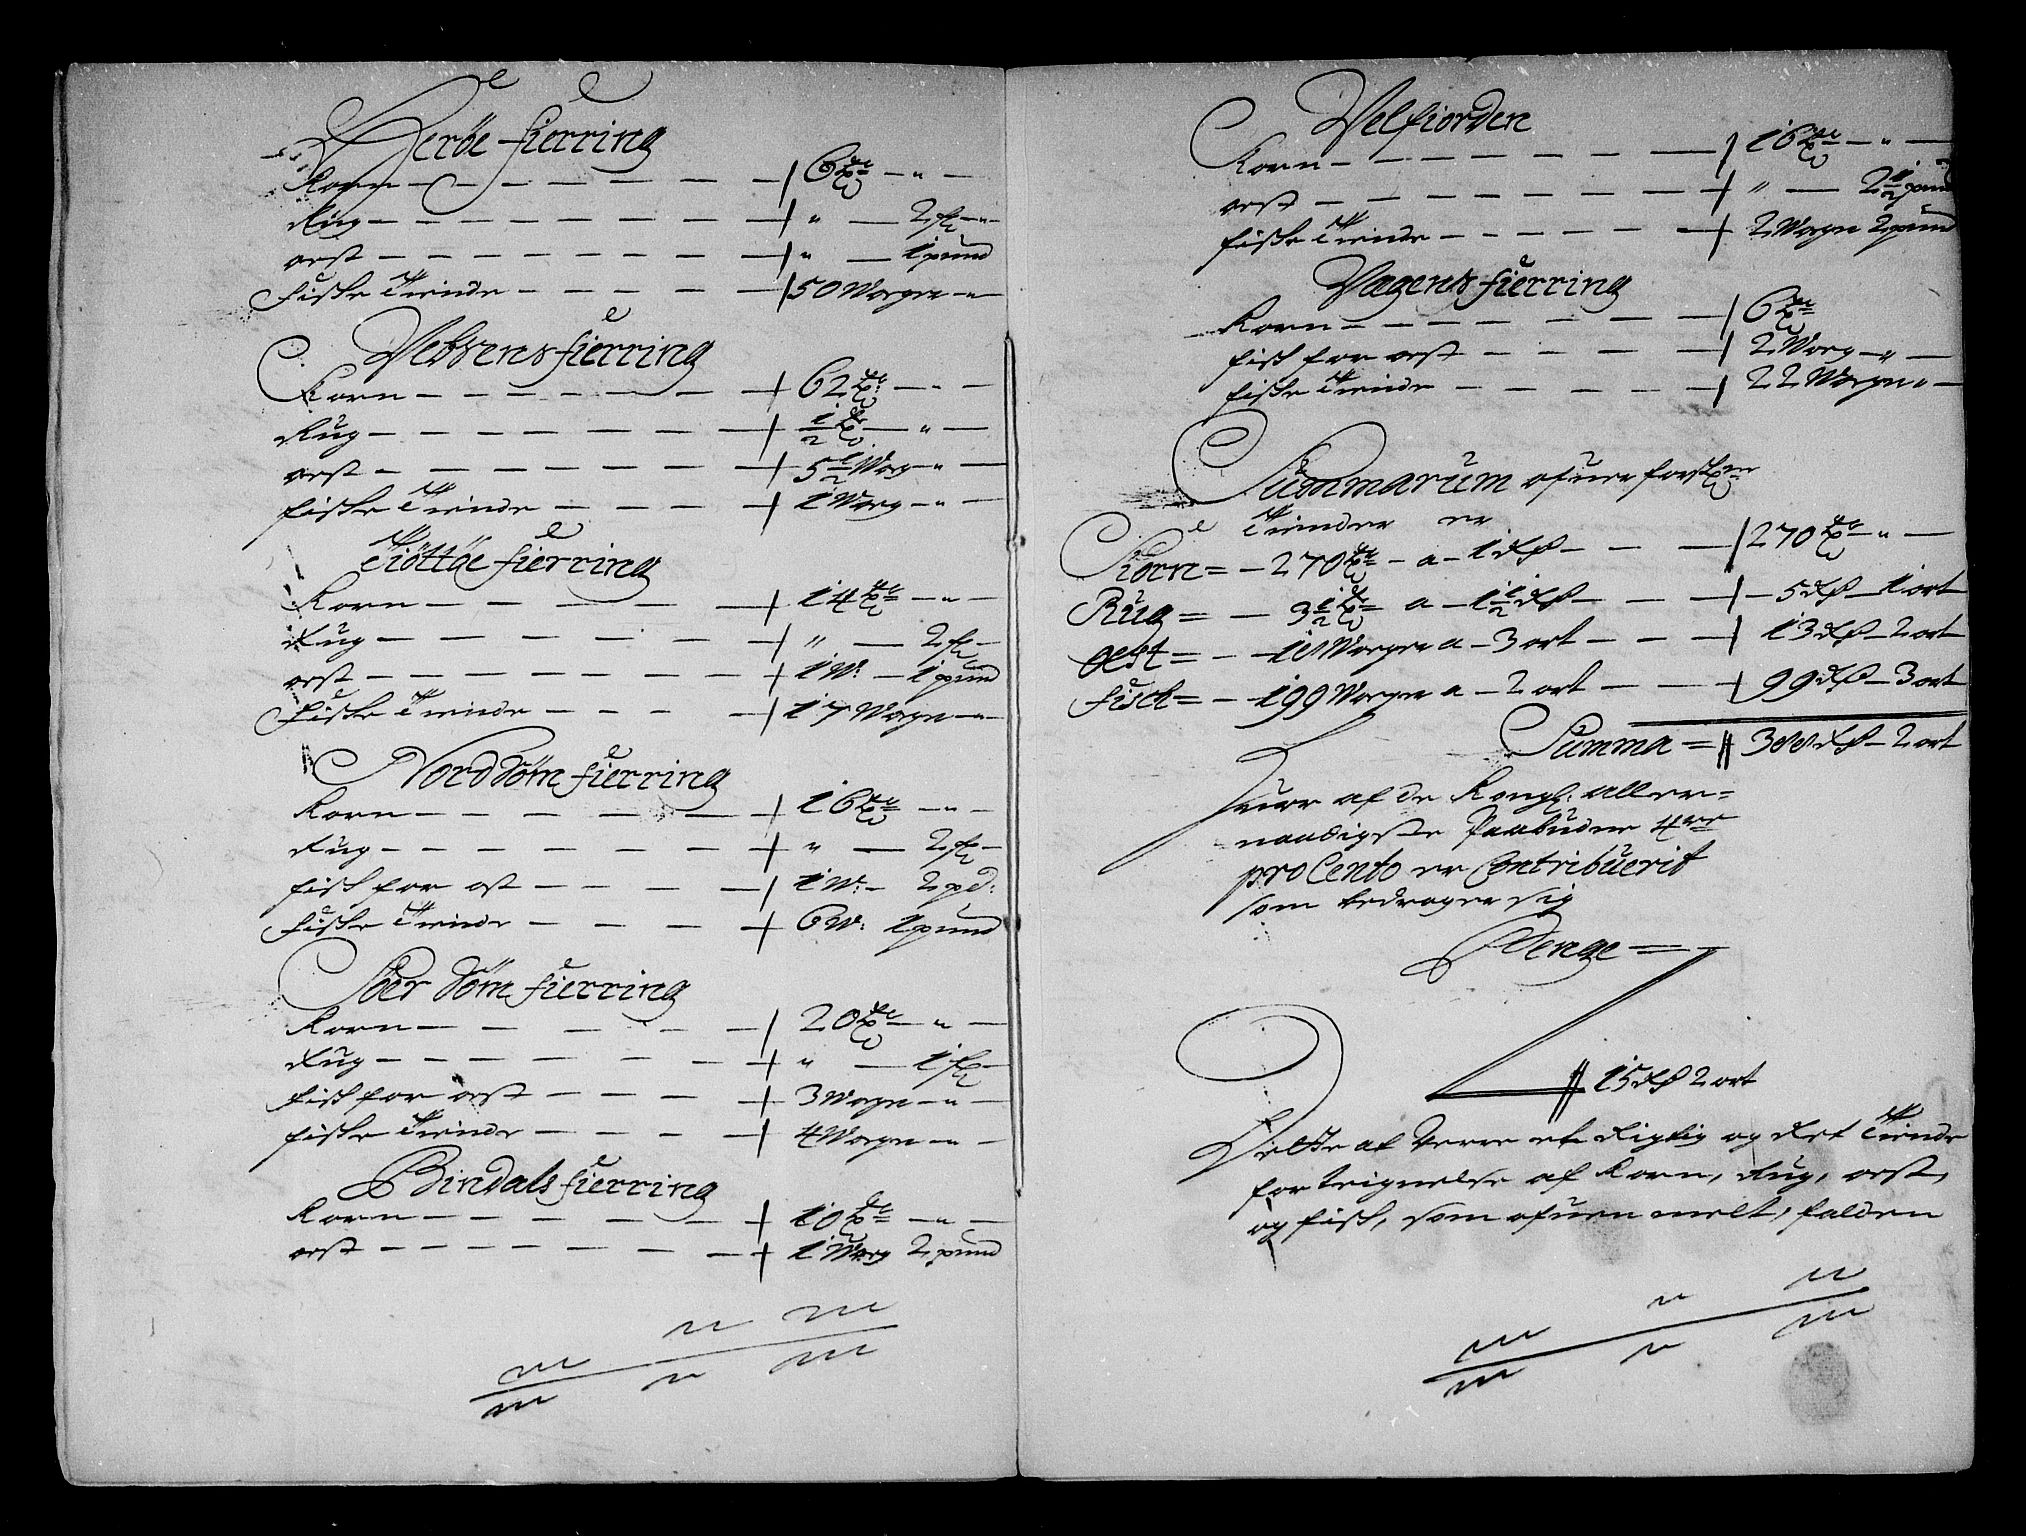 Herøe fierring
Korn — 6 tde — " —
Rug — " — 2 fl — "
oest — " — 1 pund
Fiske Tiende — 50 Woger — "
Vefsens fierring
Korn — 62 tdr — " —
Rug — ½ tde — " —
oest — 5½ Wog — " —
fiske Tiende — 1 Wog — " —
Tiøttøe fierring
Korn — 14 tdr — " —
Rug — " — 2 fl —
oest — 1 W: — 1 pund
Fiske Tiende — 17 Woger — "
Nord Sømn fierring
Korn — 16 tdr — " —
Rug — " — 2 fl —
fisk for ost — 1 W: — 2 pd:
Fiske Tiende — 6 W: 1 pund
Søer Sømn fierring
Korn — 20 tdr — " —
Rug — " — 1 fl —
fisk for oest — 3 Woger — " —
fiske Tiende — 4 Woger — " —
Bindals fierring
Korn — 10 tdr — " —
oest — 1 Wog 2 pund
Velfiorden
Korn — 16 tdr — " —
oest — " — 2½ pund
fiske Tiende — 2 Woger 2 pund
Vagens fierring
Korn — 6 tdr
fisk for oest — 2 Wog — " —
fiske Tiende — 22 Woger " —
Summarum ofuenforskrne
Tiender er
Korn = — 270 tdr — a — 1 dlr — 270 — " —
Rug = — 3½ tde a — 1½ dlr — 5 dlr — 1 ort
Oest = — 18 Woger a — 3 ort — 13 dlr — 2 ort
Fisch = — 199 Woger a — 2 ort — 99 dlr — 3 ort
Summa = 388 dlr — 2 ort
huor af de Kongl: aller=
naadigste Paabudne 4re
pro Cento er Contribuerit
som bedrager sig
Penge =
15 dlr 2 ort
Dette at Verre et Rigtig og Ret Tiende
forteignelse af Korn, Rug, oest,
og fisk, som ofuen melt, falden